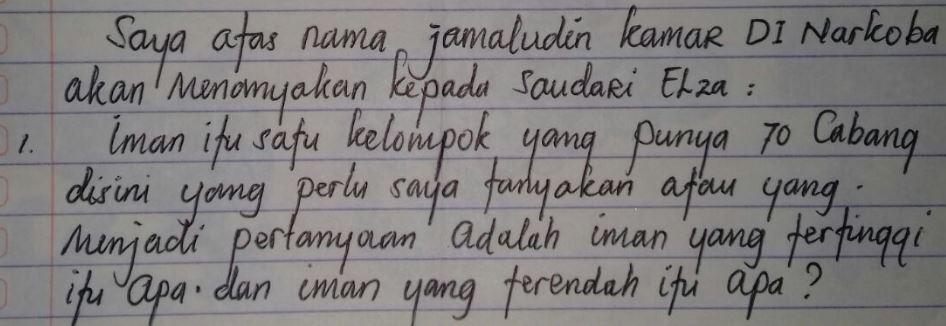 Saya atas nama jamaludin kamar DI Narkoba
akan Menanyakan kepada Saudari Elza :
1. iman itu satu kelompok yang punya 70 Cabang
disini yang perlu saya tanyakan atau yang.
Menjadi pertanyaan adalah iman yang tertinggi
itu apa. dan iman yang terendah itu apa?